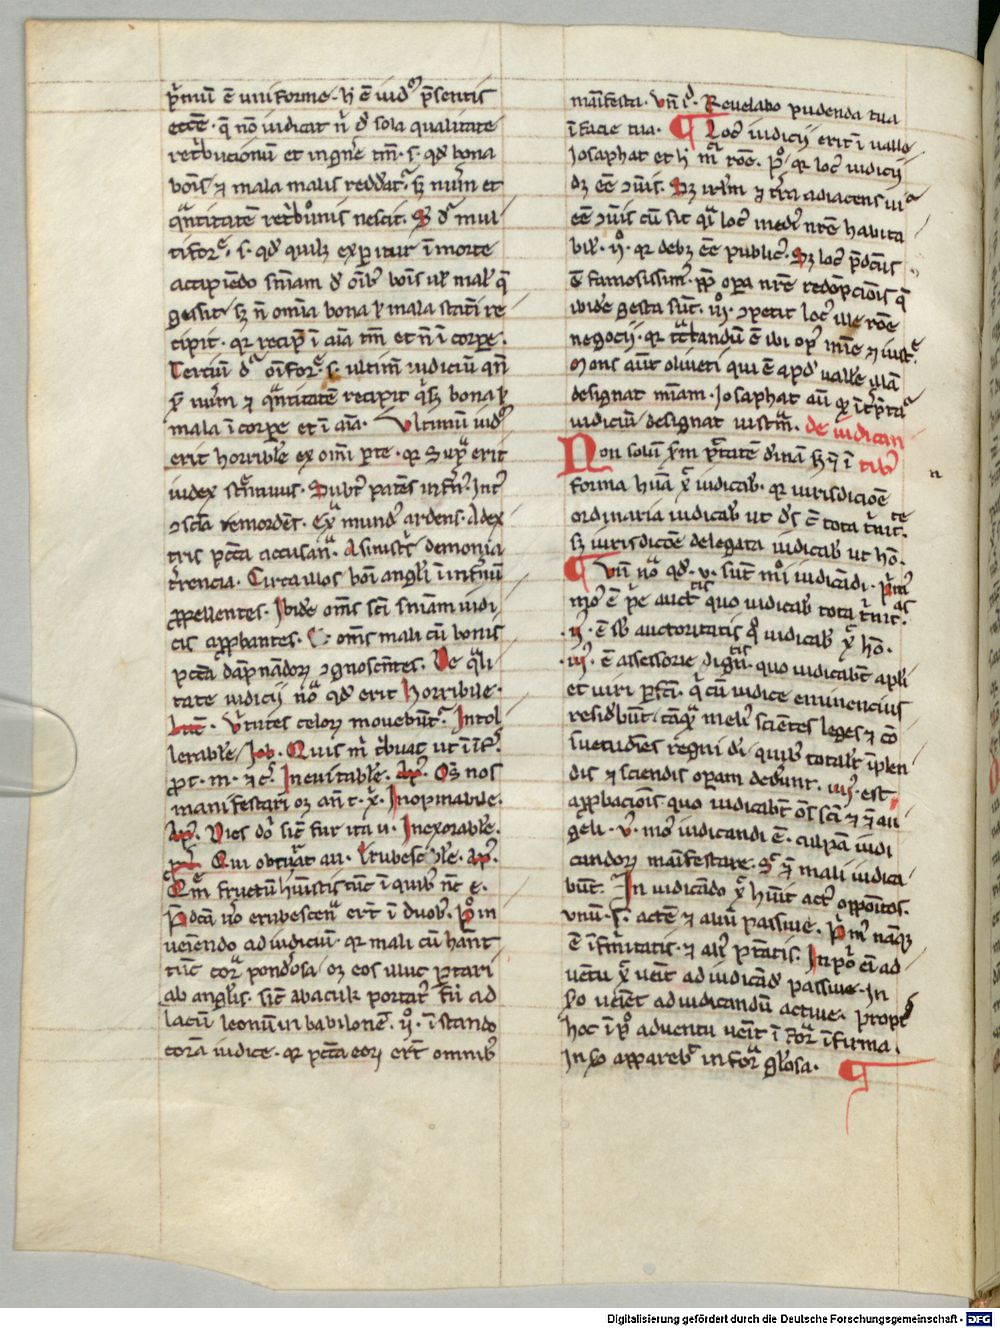 p̄mū ē uniforme · h̄ ē iud' p̄sentis
ecc̄e · q̄ nō iudicat n̄ d' sola qualitate
ret'bucionū et in gn̄e tm̄ · s · qd' bona
bōis ⁊ mala malis redd̄at' sꝫ nūm et
quātitatē nescit · d' mul
tifor' · s · qd' quilꝫ exp'itur ī morte
accipiēdo sn̄iam d' oīb' bōis ul' mal' q̄
gessit · sꝫ n̄ omīa bona ul' mala statī re
cipit · qr recip' ī aīa tm̄ et n̄ ī corpe ·
Terciū d' oīfor' · s · ultim̄ iudiciū qn̄
nūm ⁊ quātitatē recipit bona
mala ī corpe et ī aīa · Vltimū iud'
erit horribile ex omī pte · qr Sup' erit
iudex · Subt' patēs infern' · Int'
ↄsciā remordēs · Ext̄ mund' ardens · A dex
tris pcc̄a accusan̄ · A sinist's demonia
t'rencia · Circa illos bōi angl'i ī infernū
ꝓpellentes · Ibidē om̄s sc̄i sn̄iam iudi
cis apꝓbantes · om̄s mali cū bonis
pcc̄a dāpnādoꝝ ↄgnoscētes · De q̄li
tate iudicij nō̄ qd' erit horribile ·
Luc̄ · V'tutes celoꝝ mouebūt' · Intol
lerabile / Iob · Quis m' t'buat ut ī īf'
ꝓt · m · ⁊c' · Ineuitabile · Ap' · Om̄s nos
manifestari oꝫ an̄ t · x̄ · Inopinabile ·
Ap' · Dies dn̄i sic fur ita u · Inexorabile ·
Qui obturat au · Erubescibile · Ap' ·
Quē fructū huistis tūc ī quib' nc̄ e ·
P̄dc̄a u'o erubescen̄ erit ī duob' · P° in
ueniendo ad iudiciū · qr mali cū habēt
tūc corpa pond'osa · oꝫ eos illuc portari
ab angl'is · sic abacuk portat' fu' ad
lacū leonū in babilone · ij° · ī stando
corā iudice · qr pcc̄a eoꝝ erūt omnib'
manifesta · Vn̄ · Reuelabo pudenda tua
ī facie tua · Loc' iudicij erit ī valle
Josaphat et h' rōe · p° qr loc' iudicij
dꝫ eē ↄuis · Sꝫ irl'm ⁊ t'ra adiacens ui'
eē ↄuis cū sit q̄i loc' medi' nr̄e habita
bil' · ij° · qr debꝫ eē public' · Sꝫ loc' p̄dc̄us
ē famosissim' · ꝓp' opa nr̄e redēpcionis q̄
ibidē gesta sūt · iij · ↄpetit loc' ille rōe
negocij · qr tractandū ē ibi op' mīe ⁊ iust'
Mons aūt oliueti qui ē apd' vallē illā
designat mīam · Josaphat aū
iudiciū designat iustiā · de iudican
Non solū s'm p'tatē diuīa sꝫ ⁊ ī tib'
forma hūa x̄ iudicab' · qr iurisdiciōe
ordinaria iudicab' ut d's tota t'nit'te
sꝫ iurisdictōe delegata iudicab' ut hō ·
Vn̄ nō qd' · v · sūt m'i iudicādi · P'm'
mō' ē p̄e auct'tis quo iudicab' tota t'nit'as ·
ij · ē sb' auctoritatis quo iudicab' x̄ hō ·
iij · ē assessorie dignitatis quo iudicabūt apl'i
et uiri pfc̄i · q' cū iudice eminencius
residebūt · tāq̄ meli' sciētes leges ⁊ cō
suetudīes regni di' · quib' totalit' īplen
dis ⁊ sciendis opam dederūt · iiij · est
apꝓbaciōis quo iudicabūt om̄s sc̄i ⁊ an
geli · v · mō' iudicandi ē · culpā iudi
candoꝝ manifestare · S' mali iudica
būt · In iudicādo x̄ huit act' opponitos ·
Vnū · s · actiuē ⁊ aliū passiue · P'm' nāqꝫ
ē ifirmitatis · ⁊ ali' p'tatis · In p° eī ad
uētu x̄ uēit ad iudicād' passiue · In
s'o ueiet ad iudicandū actiue · propt'
hoc ī p° aduentu uēit ī forma īfirma ·
In s'o apparebit in forma gl'osa ·
n
Digitalisierung gefördert durch die Deutsche Forschungsgemeinschaft · DFG